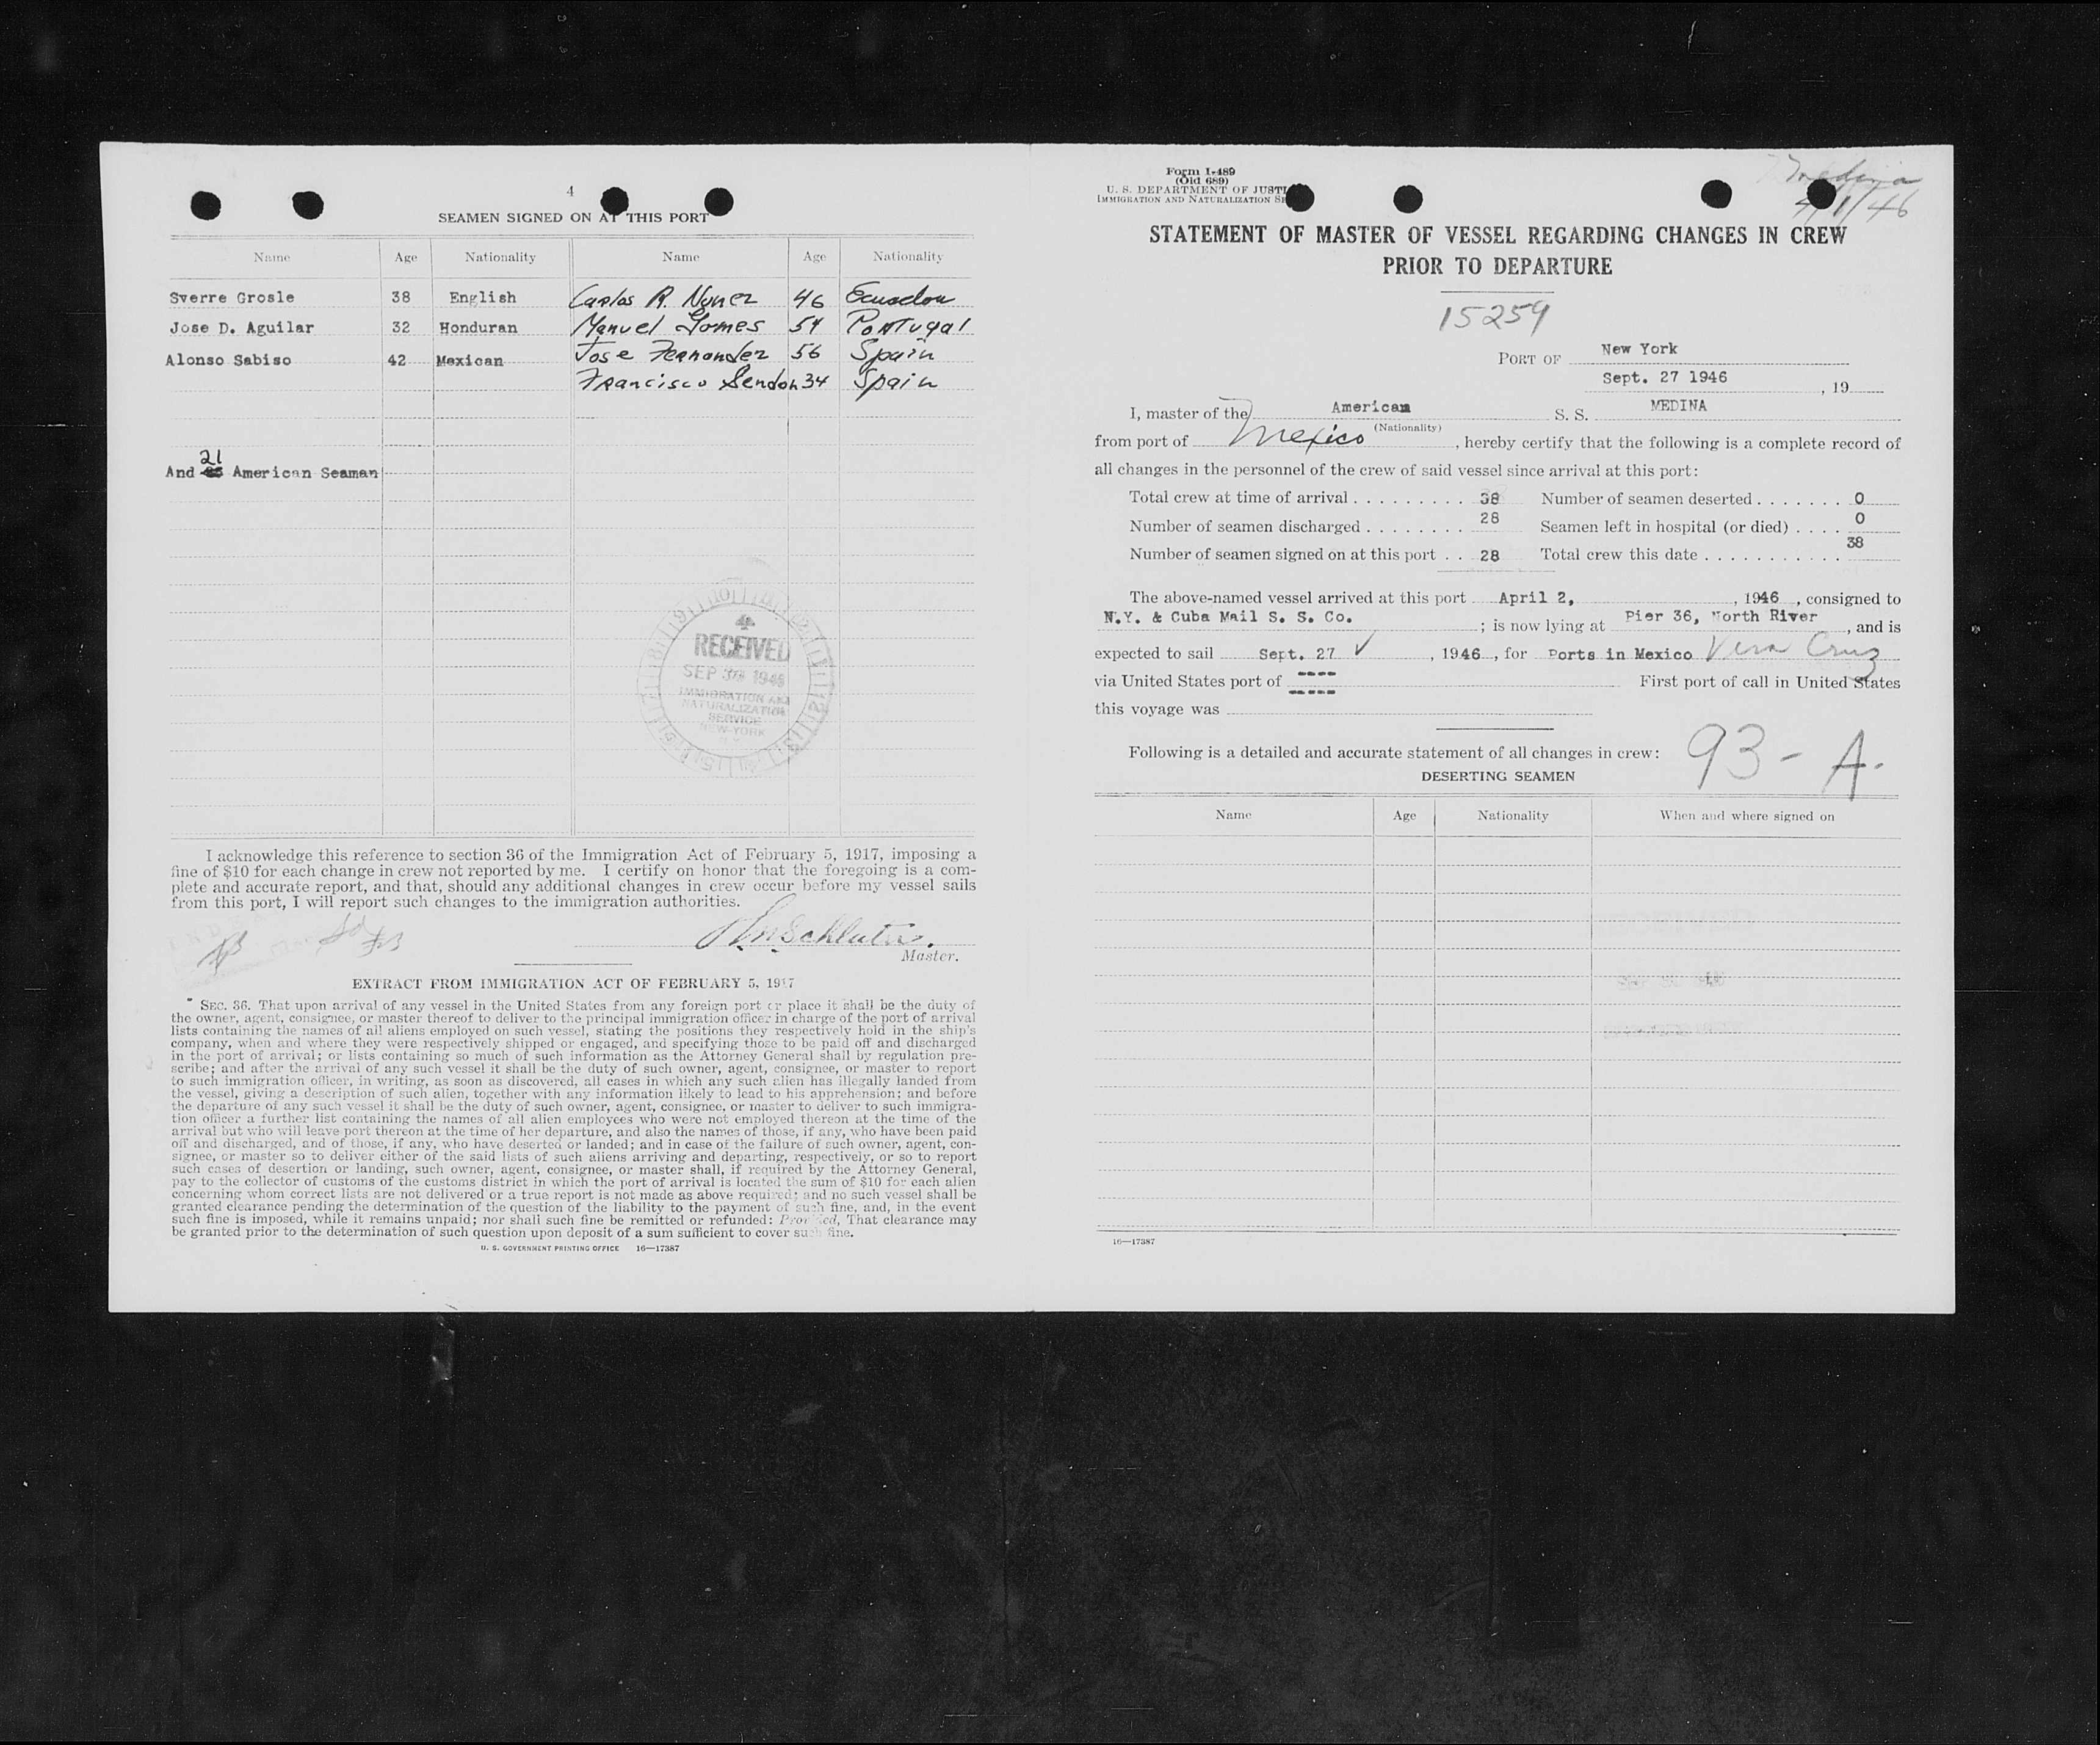 4
SEAMEN SIGNED ON AT THIS PORT
Name Age Nationality Name Age Nationality
Sverre Grosle 38 English Carlos R. Nunez 46 Ecuador
Jose D. Aguilar 32 Honduran Manuel Gomes 54 Portugal
Alonso Sabiso 42 Mexican Jose Fernandez 56 Spain
Francisco Sendon 34 Spain
21
And American Seaman
RECEIVED
SEP 1946
IMMIGRATION AND
NATURALIZATION
SERVICE
NEW YORK
I acknowledge this reference to section 36 of the Immigration Act of February 5, 1917, imposing a
fine of $10 for each change in crew not reported by me. I certify on honor that the foregoing is a com-
plete and accurate report, and that, should any additional changes in crew occur before my vessel sails
from this port, I will report such changes to the immigration authorities.
Schluter.
Master.
EXTRACT FROM IMMIGRATION ACT OF FEBRUARY 5, 1917
SEC. 36. That upon arrival of any vessel in the United States from any foreign port or place it shall be the duty of
the owner, agent, consignee, or master thereof to deliver to the principal immigration officer in charge of the port of arrival
lists containing the names of all aliens employed on such vessel, stating the positions they respectively hold in the ship's
company, when and where they were respectively shipped or engaged, and specifying those to be paid off and discharged
in the port of arrival; or lists containing so much of such information as the Attorney General shall by regulation pre-
scribe; and after the arrival of any such vessel it shall be the duty of such owner, agent, consignee, or master to report
to such immigration officer, in writing, as soon as discovered, all cases in which any such alien has illegally landed from
the vessel, giving a description of such alien, together with any information likely to lead to his apprehension; and before
the departure of any such vessel it shall be the duty of such owner, agent, consignee, or master to deliver to such immigra-
tion officer a further list containing the names of all alien employees who were not employed thereon at the time of the
arrival but who will leave port thereon at the time of her departure, and also the names of those, if any, who have been paid
off and discharged, and of those, if any, who have deserted or landed; and in case of the failure of such owner, agent, con-
signee, or master so to deliver either of the said lists of such aliens arriving and departing, respectively, or so to report
such cases of desertion or landing, such owner, agent, consignee, or master shall, if required by the Attorney General,
pay to the collector of customs of the customs district in which the port of arrival is located the sum of $10 for each alien
concerning whom correct lists are not delivered or a true report is not made as above required; and no such vessel shall be
granted clearance pending the determination of the question of the liability to the payment of such fine, and, in the event
such fine is imposed, while it remains unpaid; nor shall such fine be remitted or refunded: Provided, That clearance may
be granted prior to the determination of such question upon deposit of a sum sufficient to cover such fine.
U. S. GOVERNMENT PRINTING OFFICE 16—17387
Form I-489
(Old 689)
U. S. DEPARTMENT OF JUSTI
IMMIGRATION AND NATURALIZATION SE
Medina
4/1/46
STATEMENT OF MASTER OF VESSEL REGARDING CHANGES IN CREW
PRIOR TO DEPARTURE
15259
PORT OF New York
Sept. 27 1946, 19
I, master of the American S. S. MEDINA
(Nationality)
from port of Mexico, hereby certify that the following is a complete record of
all changes in the personnel of the crew of said vessel since arrival at this port:
Total crew at time of arrival . . . . . . . . . 38 Number of seamen deserted . . . . . . . 0
Number of seamen discharged . . . . . . . . 28 Seamen left in hospital (or died) . . . . 0
Number of seamen signed on at this port . . 28 Total crew this date . . . . . . . . . . . 38
The above-named vessel arrived at this port April 2, , 1946, consigned to
N.Y. & Cuba Mail S. S. Co. ; is now lying at Pier 36, North River, and is
expected to sail Sept. 27 ✓, 1946, for Ports in Mexico Vera Cruz
via United States port of ---- First port of call in United States
this voyage was -----
Following is a detailed and accurate statement of all changes in crew: 93-A.
DESERTING SEAMEN
Name Age Nationality When and where signed on
16—17387